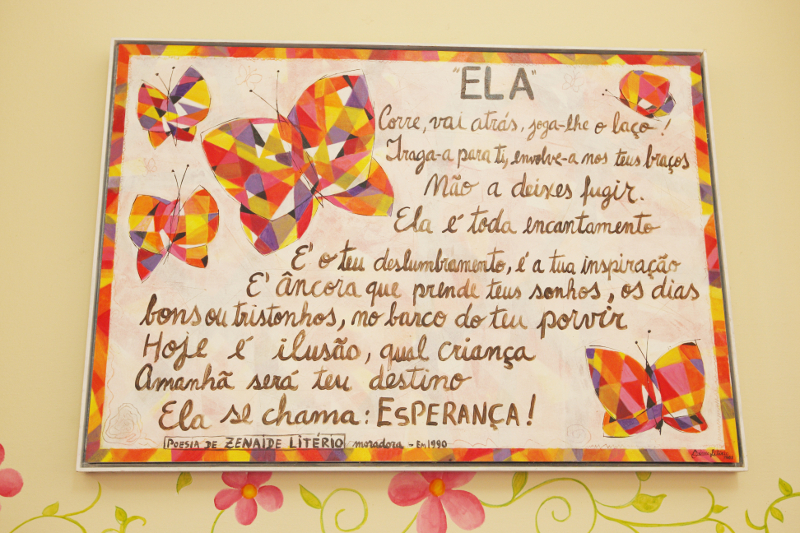 "ELA"
Corre, vai atrás, joga-lhe o laço!
Traga-a para ti, envolve-a nos teus braços
Não a deixes fugir.
Ela é toda encantamento
E' o teu deslumbramento, é a tua inspiração
E' âncora que prende teus sonhos, os dias
bons ou tristonhos, no barco do teu porvir
Hoje é ilusão, qual criança
Amanhã será teu destino
Ela se chama: ESPERANÇA!
POESIA DE ZENAIDE LITÉRIO moradora - EM 1990